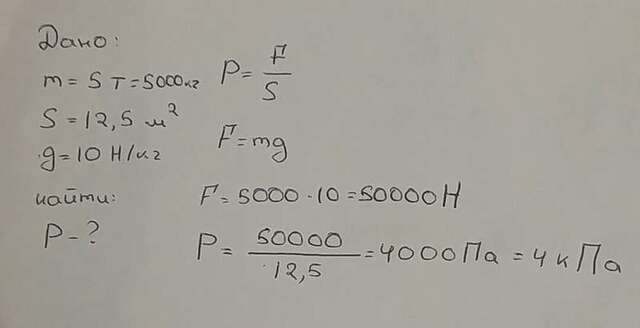 Дано:
m = 5 т = 5000 кг
S = 12,5 м²
g = 10 Н/кг
найти:
P - ?
P = F/S
F = mg
F = 5000 · 10 = 50000 Н
P = 50000/12,5 = 4000 Па = 4 кПа